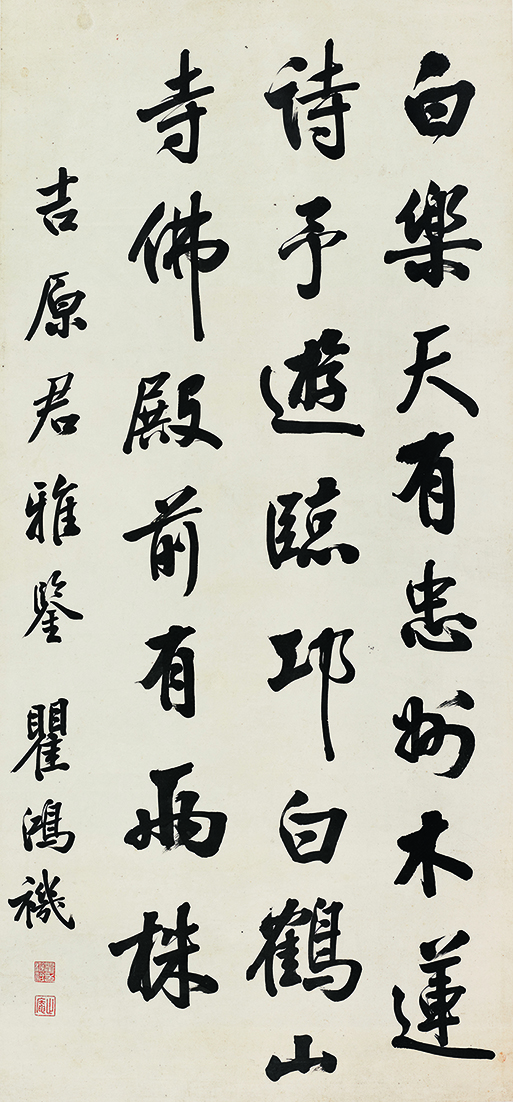 白樂天有忠州木蓮
詩予遊臨邛白鶴山
寺佛殿前有兩株
吉原君雅鑒 瞿鴻禨